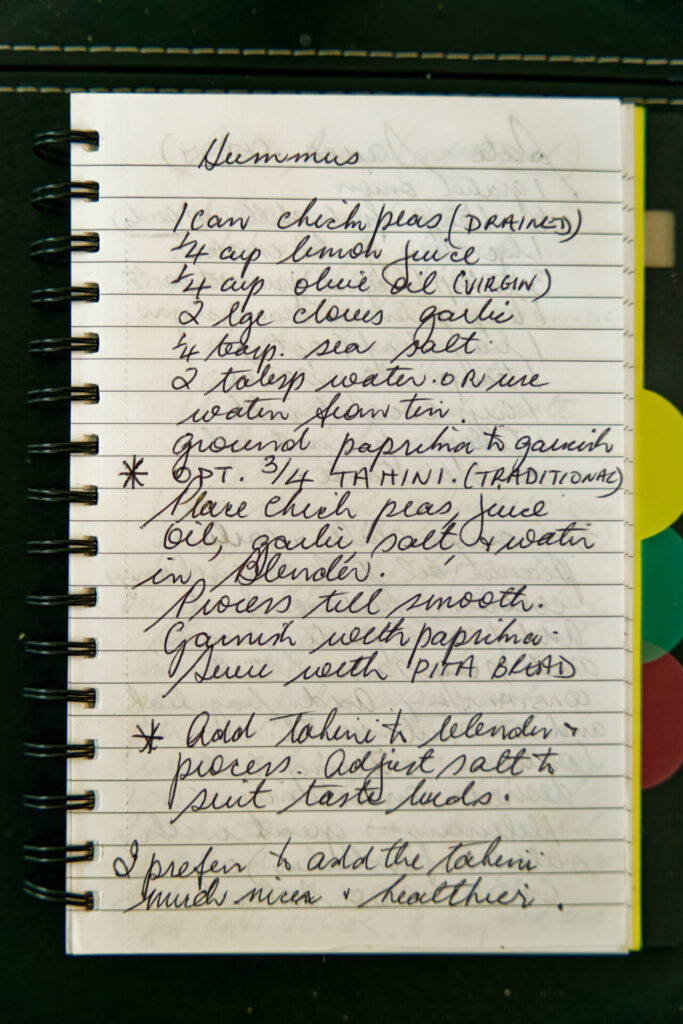 Hummus
1 can chick peas (DRAINED)
1/4 cup lemon juice
1/4 cup olive oil (VIRGIN)
2 lge cloves garlic
1/4 teasp. sea salt.
2 tablsp water. OR use
water from tin.
ground paprika to garnish
* OPT. 3/4 TAHINI. (TRADITIONAL)
Place chick peas, juice
oil, garlic, salt, + water
in Blender.
Process till smooth.
Garnish with paprika.
Serve with PITA BREAD
* Add tahini to blender +
process. Adjust salt to
suit taste buds.
I prefer to add the tahini
much nicer + healthier.